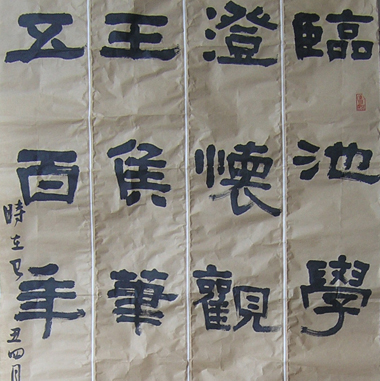 臨池學
澄懷觀
王侯筆
五百年
時在己丑四月